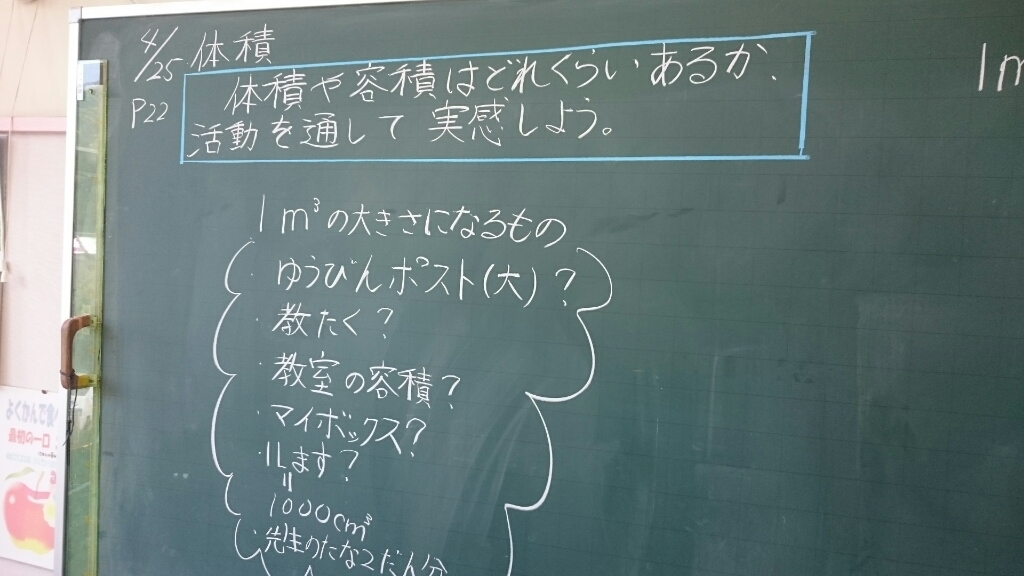 4/25 体積
P22
体積や容積はどれくらいあるか、
活動を通して実感しよう。
1m
1m³の大きさになるもの
・ゆうびんポスト(大)?
・教たく?
・教室の容積?
・マイボックス?
・1Lます?
=
1000cm³
・先生のたな2だん分
よくかんで
最初の一口